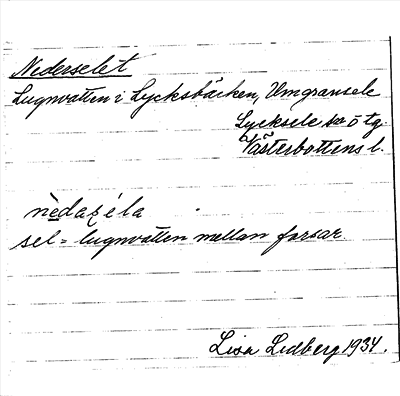 Nederselet
Lugnvatten i Lycksbäcken, Umgransele
Lycksele so o tg.
Västerbottens l.
nèdaʐéla
sel = lugnvatten mellan forsar
Lisa Lidberg 1934.